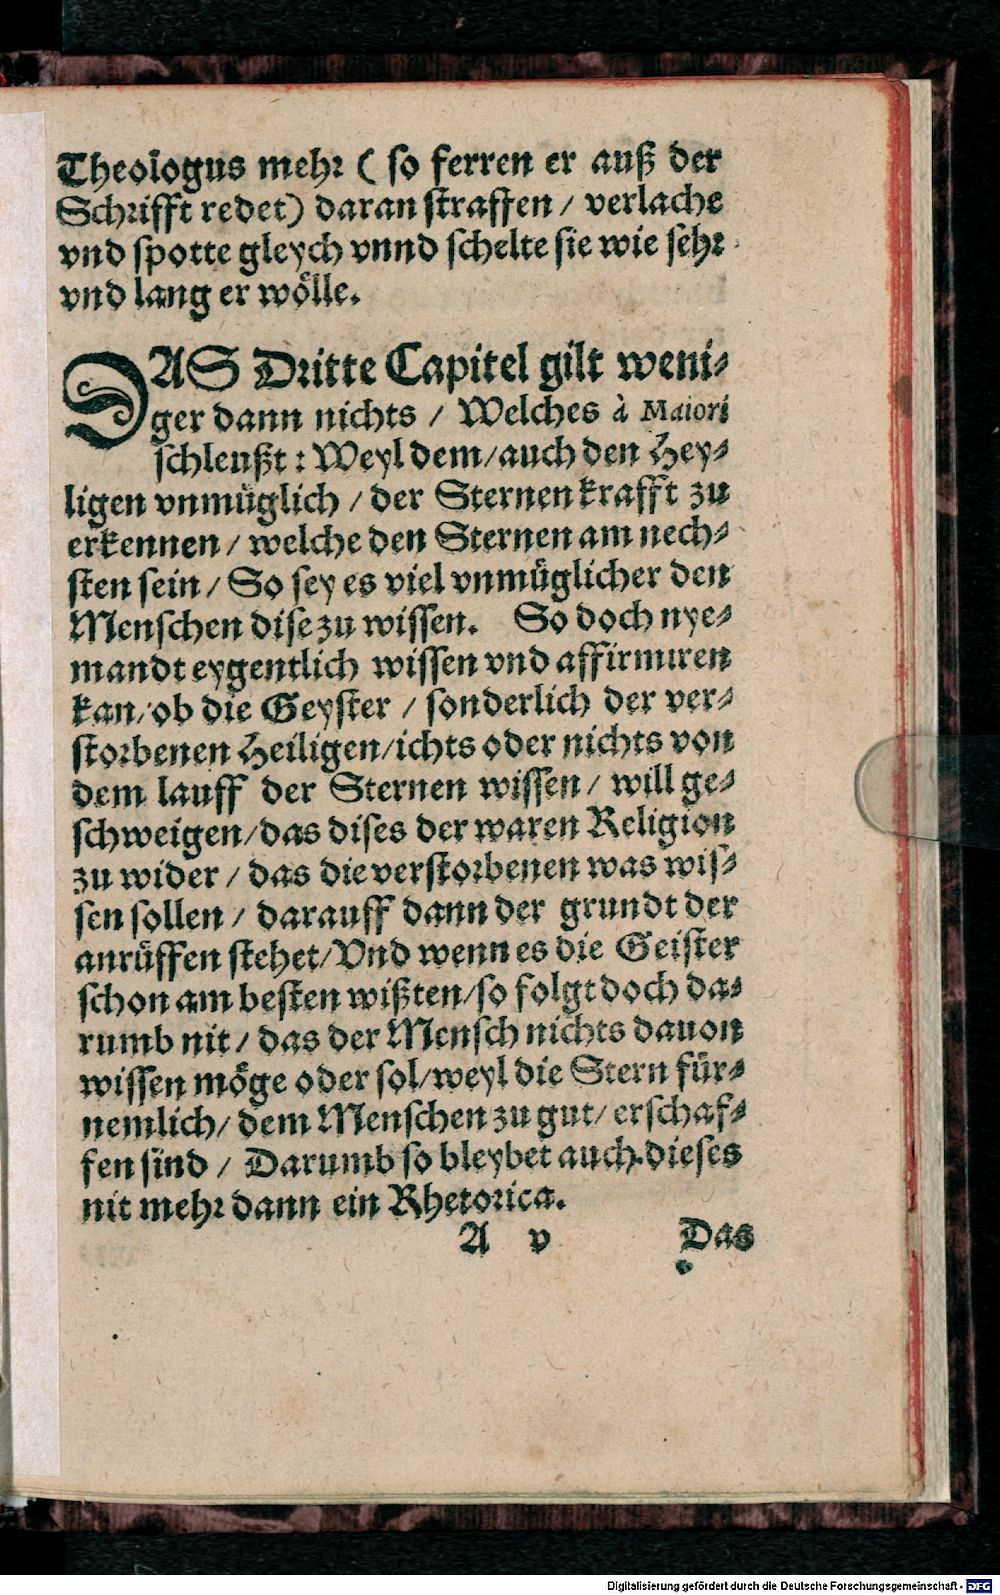 Theologus mehr ( so ferren er auß der
Schrifft redet) daran straffen / verlache
vnd spotte gleych vnnd schelte sie wie sehr
vnd lang er wölle.
DAS Dritte Capitel gilt weni-
ger dann nichts / Welches à Maiori
schleußt : Weyl dem/auch den Hey-
ligen vnmüglich / der Sternen krafft zu
erkennen / welche den Sternen am nech-
sten sein / So sey es viel vnmüglicher den
Menschen dise zu wissen. So doch nye-
mandt eygentlich wissen vnd affirmiren
kan/ob die Geyster / sonderlich der ver-
storbenen Heiligen/ichts oder nichts von
dem lauff der Sternen wissen / will ge-
schweigen/das dises der waren Religion
zu wider / das die verstorbenen was wis-
sen sollen / darauff dann der grundt der
anrüffen stehet/Vnd wenn es die Geister
schon am besten wißten/so folgt doch da-
rumb nit / das der Mensch nichts dauon
wissen möge oder sol/weyl die Stern für-
nemlich/ dem Menschen zu gut/ erschaf-
fen sind / Darumb so bleybet auch dieses
nit mehr dann ein Rhetorica.
A v Das
Digitalisierung gefördert durch die Deutsche Forschungsgemeinschaft - DFG